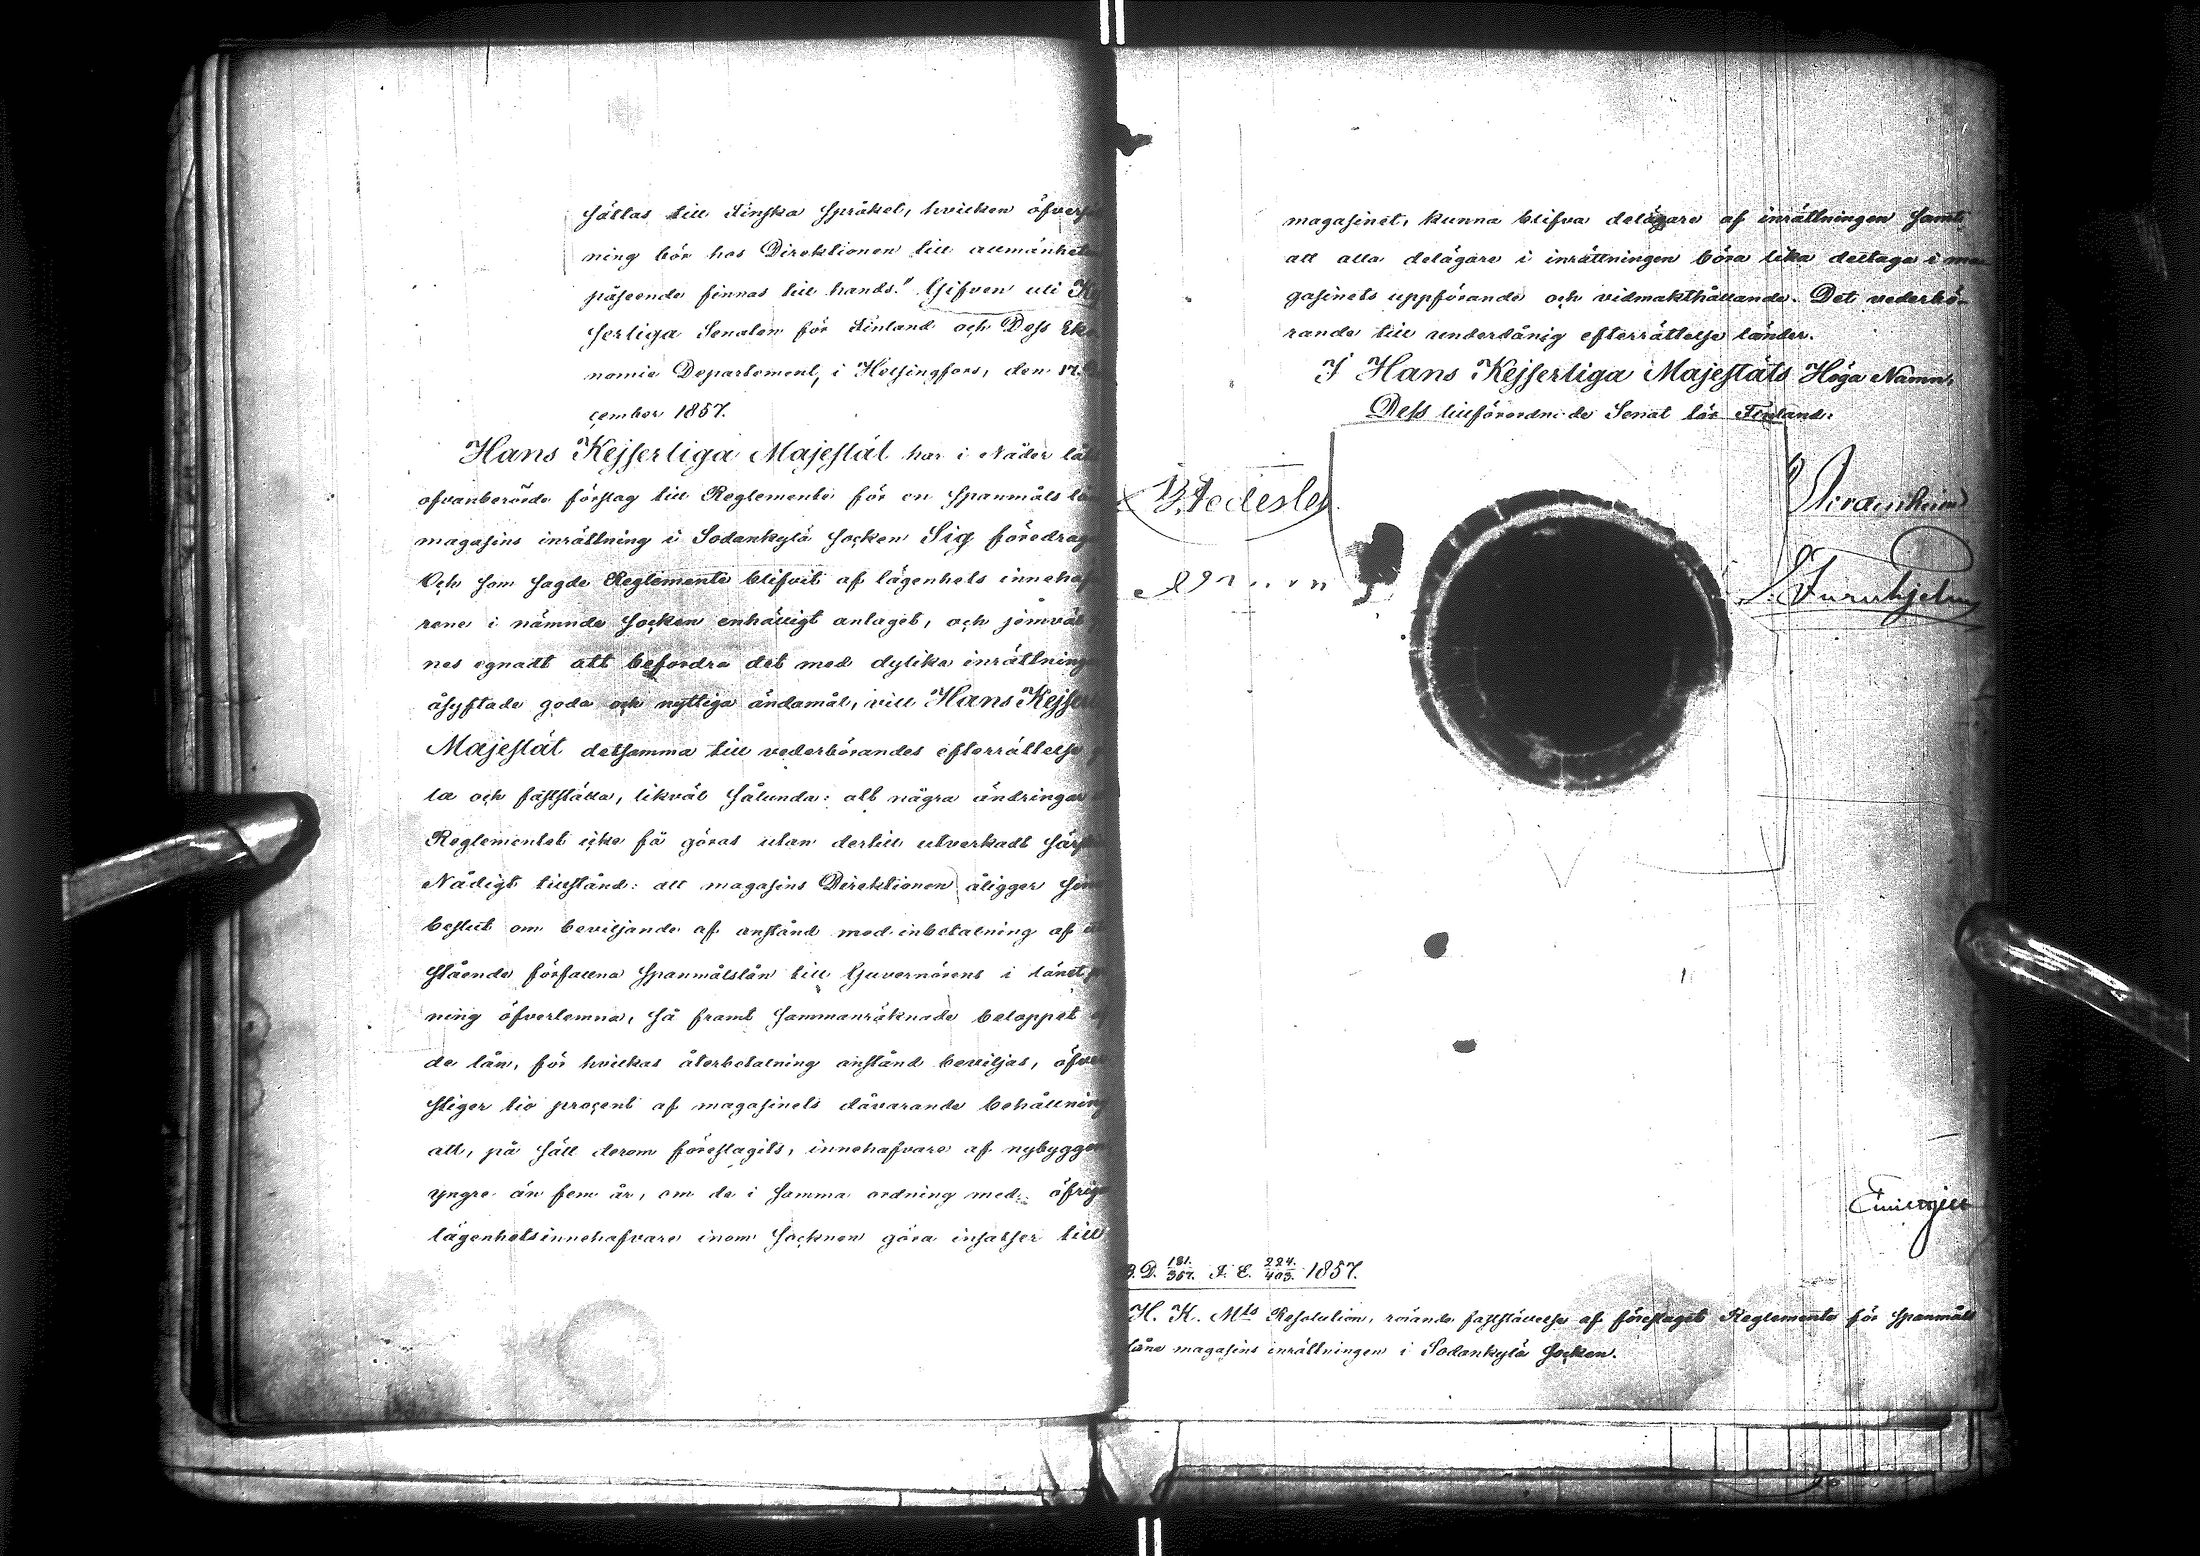 sättas till Finska språket, hvilken öfvers
ning bör hos Direktionen till allmänhetens
påseende finnas till hands." Gifven uti Kej
serliga Senaten för Finland och Dess Eko
nomie Departement, i Helsingfors, den 17.
cember 1857.
Hans Kejserliga Majestät har i Nåder låt
ofvanberörde förslag till Reglemente för en spanmåls lån
magasins inrättning i Sodankylä socken Sig föredrag
Och som sagde Reglemente blifvit af lägenhets innehaf
rene i nämnde socken enhälligt antaget, och jemväl
nes egnadt att befordra det med dylika inrättning
åsyftade goda och nyttiga ändamål, vill Hans Kejser
Majestät detsamma till vederbörandes efterrättelse g
la och fastställa, likväl sålunda: att några ändringar
Reglementet icke få göras utan dertill utverkadt särs
Nådigt tillstånd: att magasins Direktionen åligger sin
beslut om beviljande af anstånd med inbetalning af
stående förfallna spanmålslån till Guvernörens i länet
ning öfverlemna, så framt sammanräknade beloppet
de lån, för hvilkas återbetalning anstånd beviljas, öfver
stiger tio procent af magasinets dåvarande behållning
att, på sätt derom föreslagits, innehafvare af nybyggen
yngre än fem år, om de i samma ordning med öfrig
lägenhetsinnehafvare inom socknen göra insatser till
magasinet, kunna blifva delägare af inrättningen samt
att alla delägare i inrättningen böra lika deltaga i ma
gasinets uppförande och vidmakthållande. Det vederbö-
rande till underdånig efterrättelse länder.
I Hans Kejserliga Majestäts Höga Namn,
Dess tillförordnade Senat för Finland:
J. Furuhjelm
B. D. 181./367. F. E. 224./403. 1857.
H. K. Mts Resolution, rörande fastställelse af föreslaget Reglemente för spanmåls
låne magasins inrättningen i Sodankylä socken.